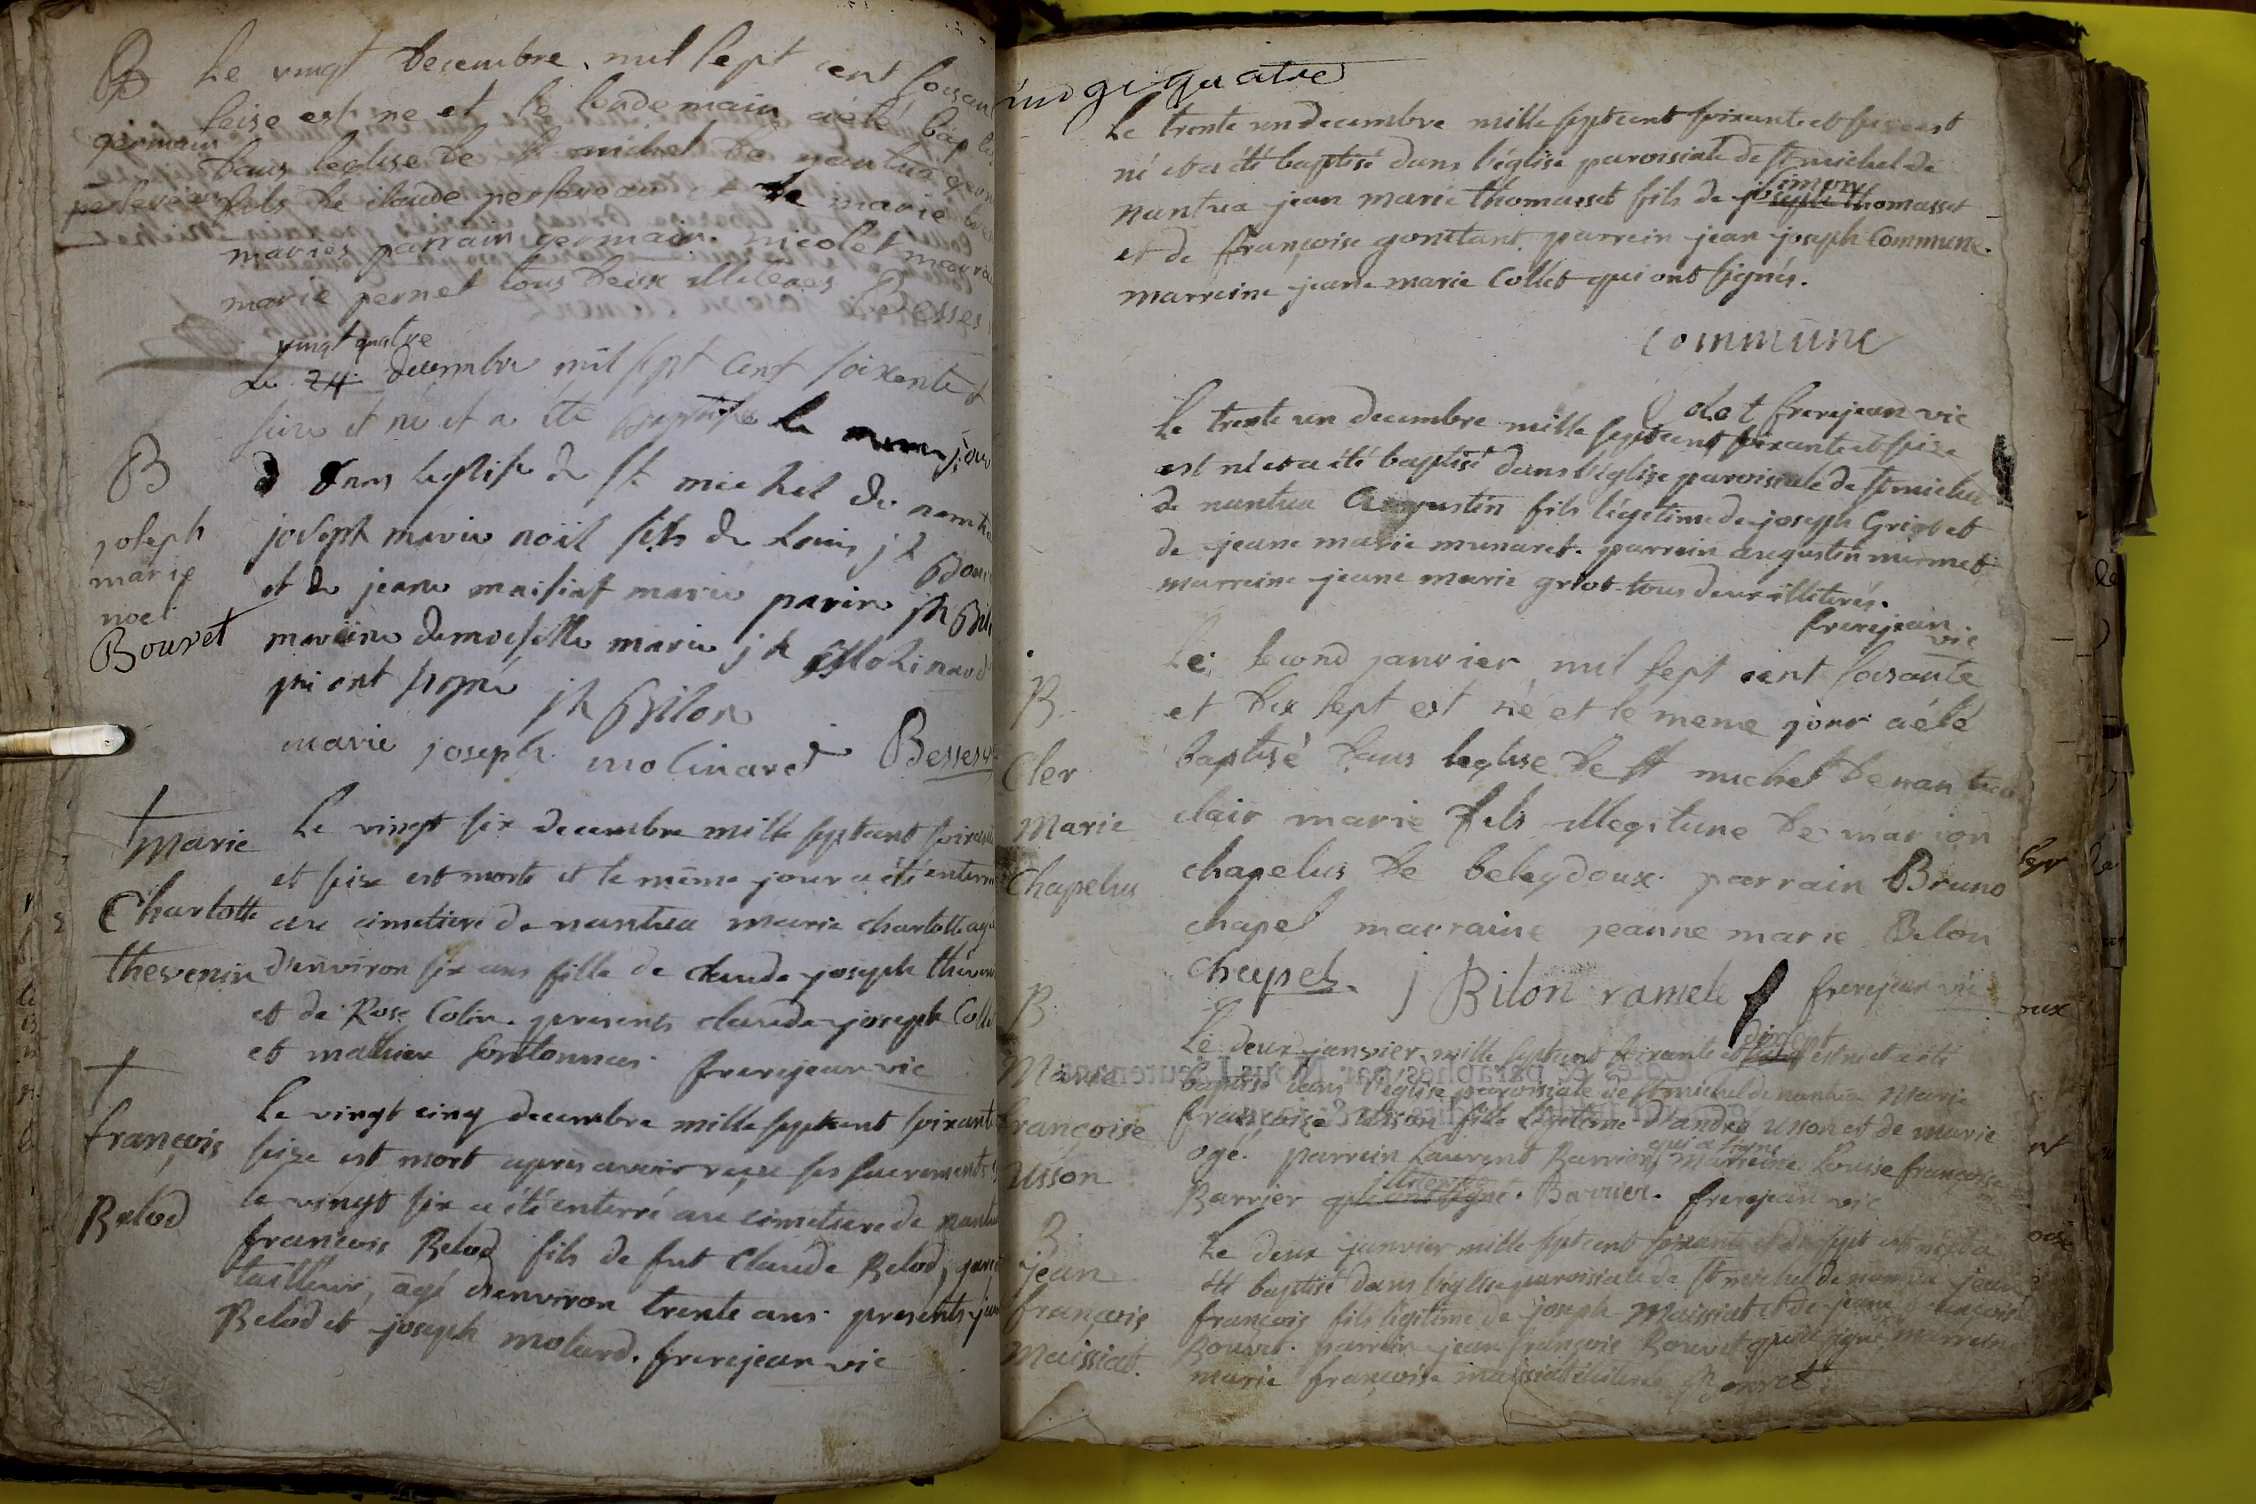 B Le vingt Decembre, mil sept cent soixan
seise est ne et le lendemain a été bap
germain
Dans l'eglise de St michel de nantua
perseveau
fils de claude perseveau et de marie
mariés parrain germain nicolet marrai
marie pernet tous deux illiteres Besses
vingt quatre
Le 24 decembre mil sept cent soixante et
seize est né et a été baptisé le meme jour
B
dans leglise de St michel de nantu
joseph
marie
noel
Bouvet
joseph marie noël fils de Louis jh Bou
et de jeane maissiat mariés parin jh Bil
mareine demoiselle marie jh Molinard
qui ont signé jh Bilon
marie joseph molinard Besses
+
Marie
Charlotte
thevenin
Le vingt six decembre mille septcent soixante
et seize est morte et le même jour a été enterré
au cimetiere de nantua marie charlotte agé
d'environ six ans fille de claude joseph theven
et de Rose Colin. presents claude joseph Coll
et mathieu frerejean vic
+
françois
Belod
Le vingt cinq decembre mille septcent soixante
seize est mort apres avoir reçu ses sacrements et
le vingt six a été enterré au cimetiere de nantu
francois Belod fils de fut Claude Belod, garç
tailleur, agé d'environ trente ans. presents jea
Belod et joseph molard. frerejean vic
vingt quatre
Le trente un decembre mille septcent soixante et seize est
né et a été baptisé dans l'église paroisiale de St michel de
Simon
nantua jean marie thomasset fils de joseph thomasset
et de françoise gonctant. parrein jean joseph Commune.
marreine jeane marie Collet qui ont signés.
Commune
Colet frerejean vic
Le trente un decembre mille septcent soixante et seize
est né et a été baptisé dans l'église paroisiale de St michel
de nantua Augustin fils légitime de joseph Griot et
de jeane marie munaret. parrein augustin mermet
marreine jeane marie griot tous deux illiterés.
frerejean
vic
B
Cler
Marie
Chapelus
Le second janvier mil sept cent soixante
et dix sept est né et le meme jour a été
baptisé dans leglise de St michel de nantua
clair marie fils illegitime de marion
chapelus de beleydoux parrain Bruno
chapel marraine jeanne marie Bilon
chapel. j Bilon ramel frerejean vic
B
Marie
françoise
Usson
dixsept
Le deux janvier mille septcent soixante et est né et a été
baptisé dans l'église paroisiale de St michel de nantua Marie
françoise Usson fille légitime d'andré usson et de marie
qui a signé
ogé. parrein Laurent Barrier, marreine Louise françoise
illiterée
Barrier qui ont signé. Barrier. frerejean vic
B
jean
françois
Maissiat.
Le deux janvier mille septcent soixante et dixsept est né et a
été baptisé dans l'église paroisiale de St michel de nantua jean
françois fils légitime de joseph Maissiat et de jeane françoise
Bouvet. parrein jean françois Bouvet qui a signé, marreine
marie françoise maissiat illiterée Bouvet